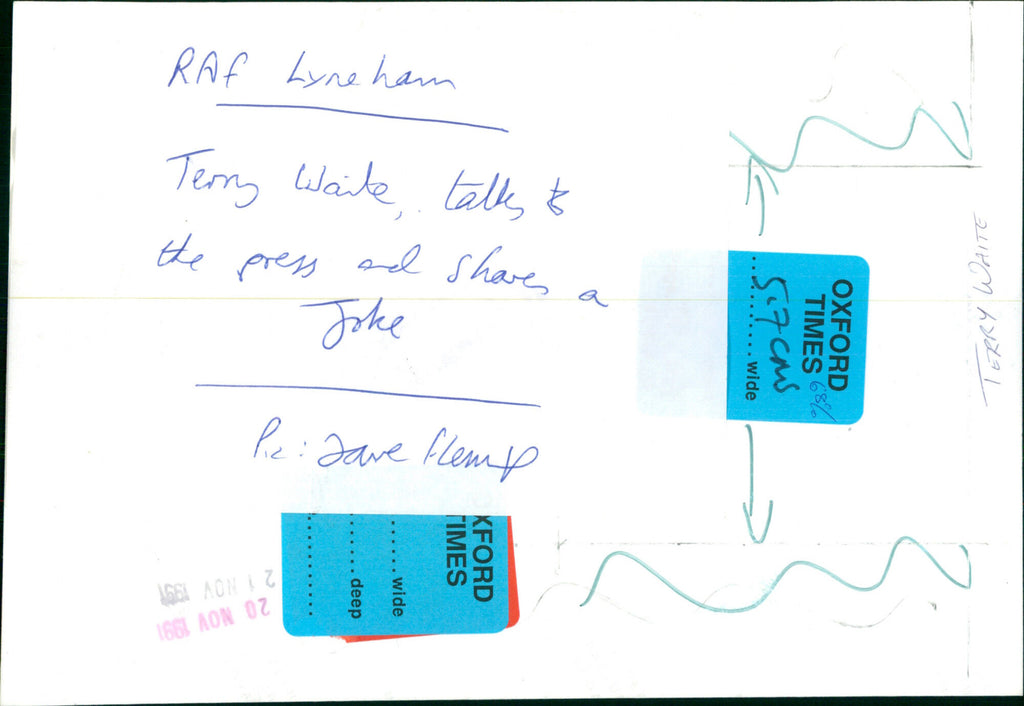 RAF Lyneham
Terry Waite, talks to
the press and shares a
Joke
Pic: Dave Fleming
OXFORD
TIMES
68%
5.7cms
.......... wide
TERRY WAITE
OXFORD
TIMES
...... wide
........ deep
21 NOV 1991
20 NOV 1991